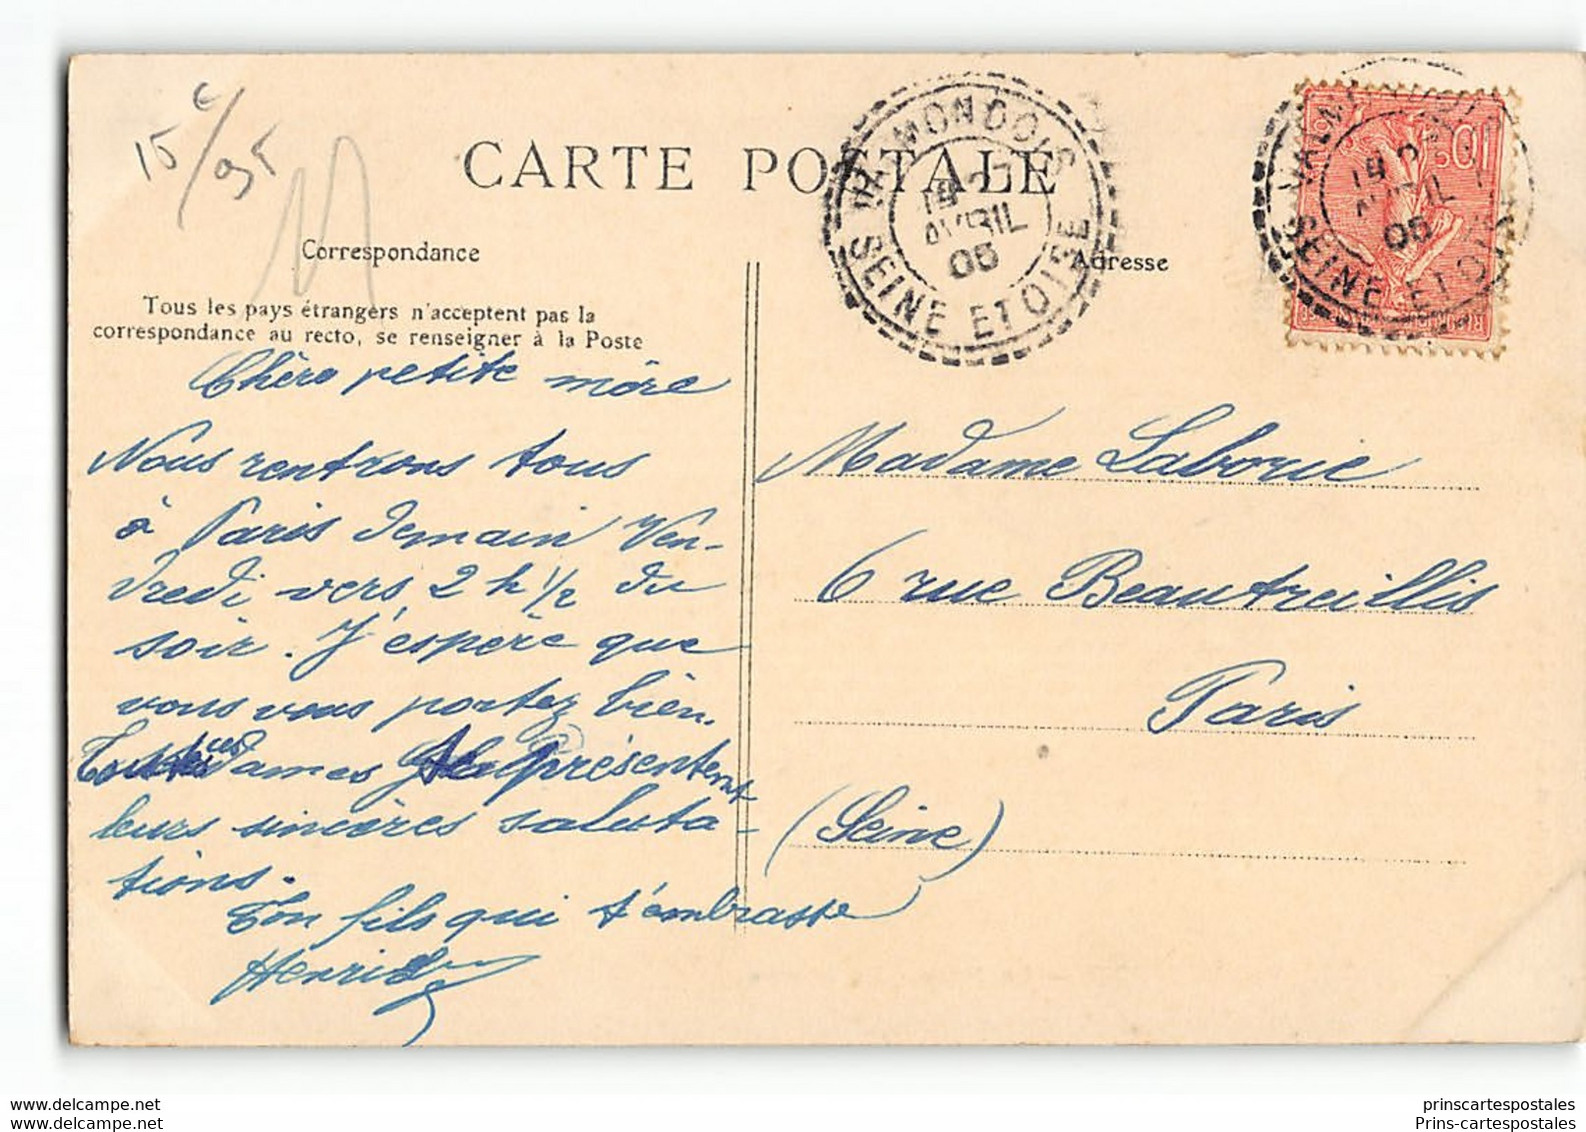 15 €/95F
CARTE POSTALE
Correspondance
Tous les pays étrangers n'acceptent pas la
correspondance au recto, se renseigner à la Poste
Chère petite mère
Nous rentrons tous
à Paris demain Ven-
dredi vers 2 h 1/2 du
soir. J'espère que
vous vous portez bien.
Toutes ces dames présentent
leurs sincères saluta-
tions.
Ton fils qui t'embrasse
Henri
VALMONDOIS
19
AVRIL
05
SEINE ET OISE
Adresse
VALMONDOIS
19
AVRIL
05
SEINE ET OISE
10c
Madame Laborie
6 rue Beautreillis
Paris
(Seine)
prinscartespostales
Prins-cartespostales.com
prinscartespostales
Prins-cartespostales